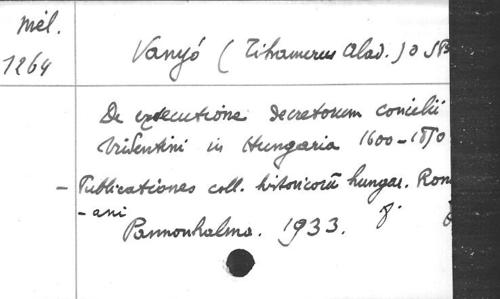 Mél.
1264
Vanyó (Tihamerus Alad.) O SB
De exsecutione decretorum concilii
Tridentini in Hungaria 1600-1850
- Publicationes coll. historicorū hungar. Rom
-ani
Pannonhalma. 1933. 8°